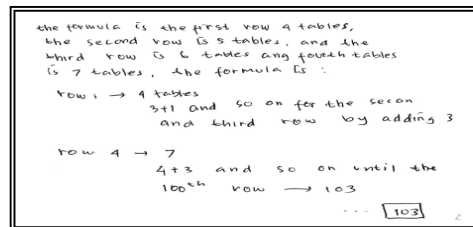 the formula is the first row 4 tables,
the second row is 5 tables, and the
third row is 6 tables ang fourth tables
is 7 tables, the formula is :
row 1 → 4 tables
3+1 and so on for the secon
and third row by adding 3
row 4 → 7
4+3 and so on until the
100th row → 103
... 103